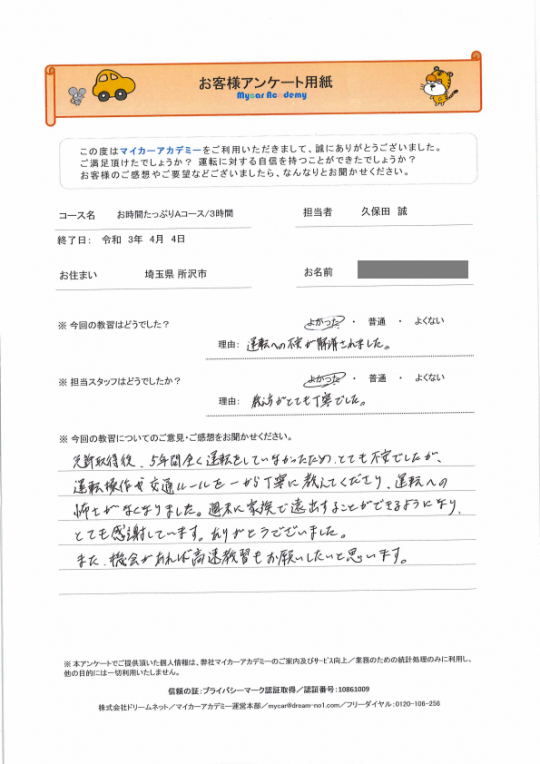 お客様アンケート用紙
Mycar Academy
この度はマイカーアカデミーをご利用いただきまして、誠にありがとうございました。
ご満足頂けたでしょうか？ 運転に対する自信を持つことができたでしょうか？
お客様のご感想やご要望などございましたら、なんなりとお聞かせください。
コース名 お時間たっぷりAコース/3時間 担当者 久保田 誠
終了日： 令和 3年 4月 4日
お住まい 埼玉県 所沢市 お名前
※ 今回の教習はどうでした？ よかった ・ 普通 ・ よくない
理由： 運転への不安が解消されました。
※ 担当スタッフはどうでしたか？ よかった ・ 普通 ・ よくない
理由： 教え方がとても丁寧でした。
※ 今回の教習についてのご意見・ご感想をお聞かせください。
免許取得後、5年間全く運転をしていなかったため、とても不安でしたが、
運転操作や交通ルールを一から丁寧に教えてくださり、運転への
怖さがなくなりました。週末に家族で遠出することができるようになり、
とても感謝しています。ありがとうございました。
また、機会があれば高速教習もお願いしたいと思います。
※ 本アンケートでご提供頂いた個人情報は、弊社マイカーアカデミーのご案内及びサービス向上／業務のための統計処理のみに利用し、
他の目的には一切利用いたしません。
信頼の証：プライバシーマーク認証取得／認証番号：10861009
株式会社ドリームネット／マイカーアカデミー運営本部／mycar@dream-no1.com／フリーダイヤル：0120-106-256